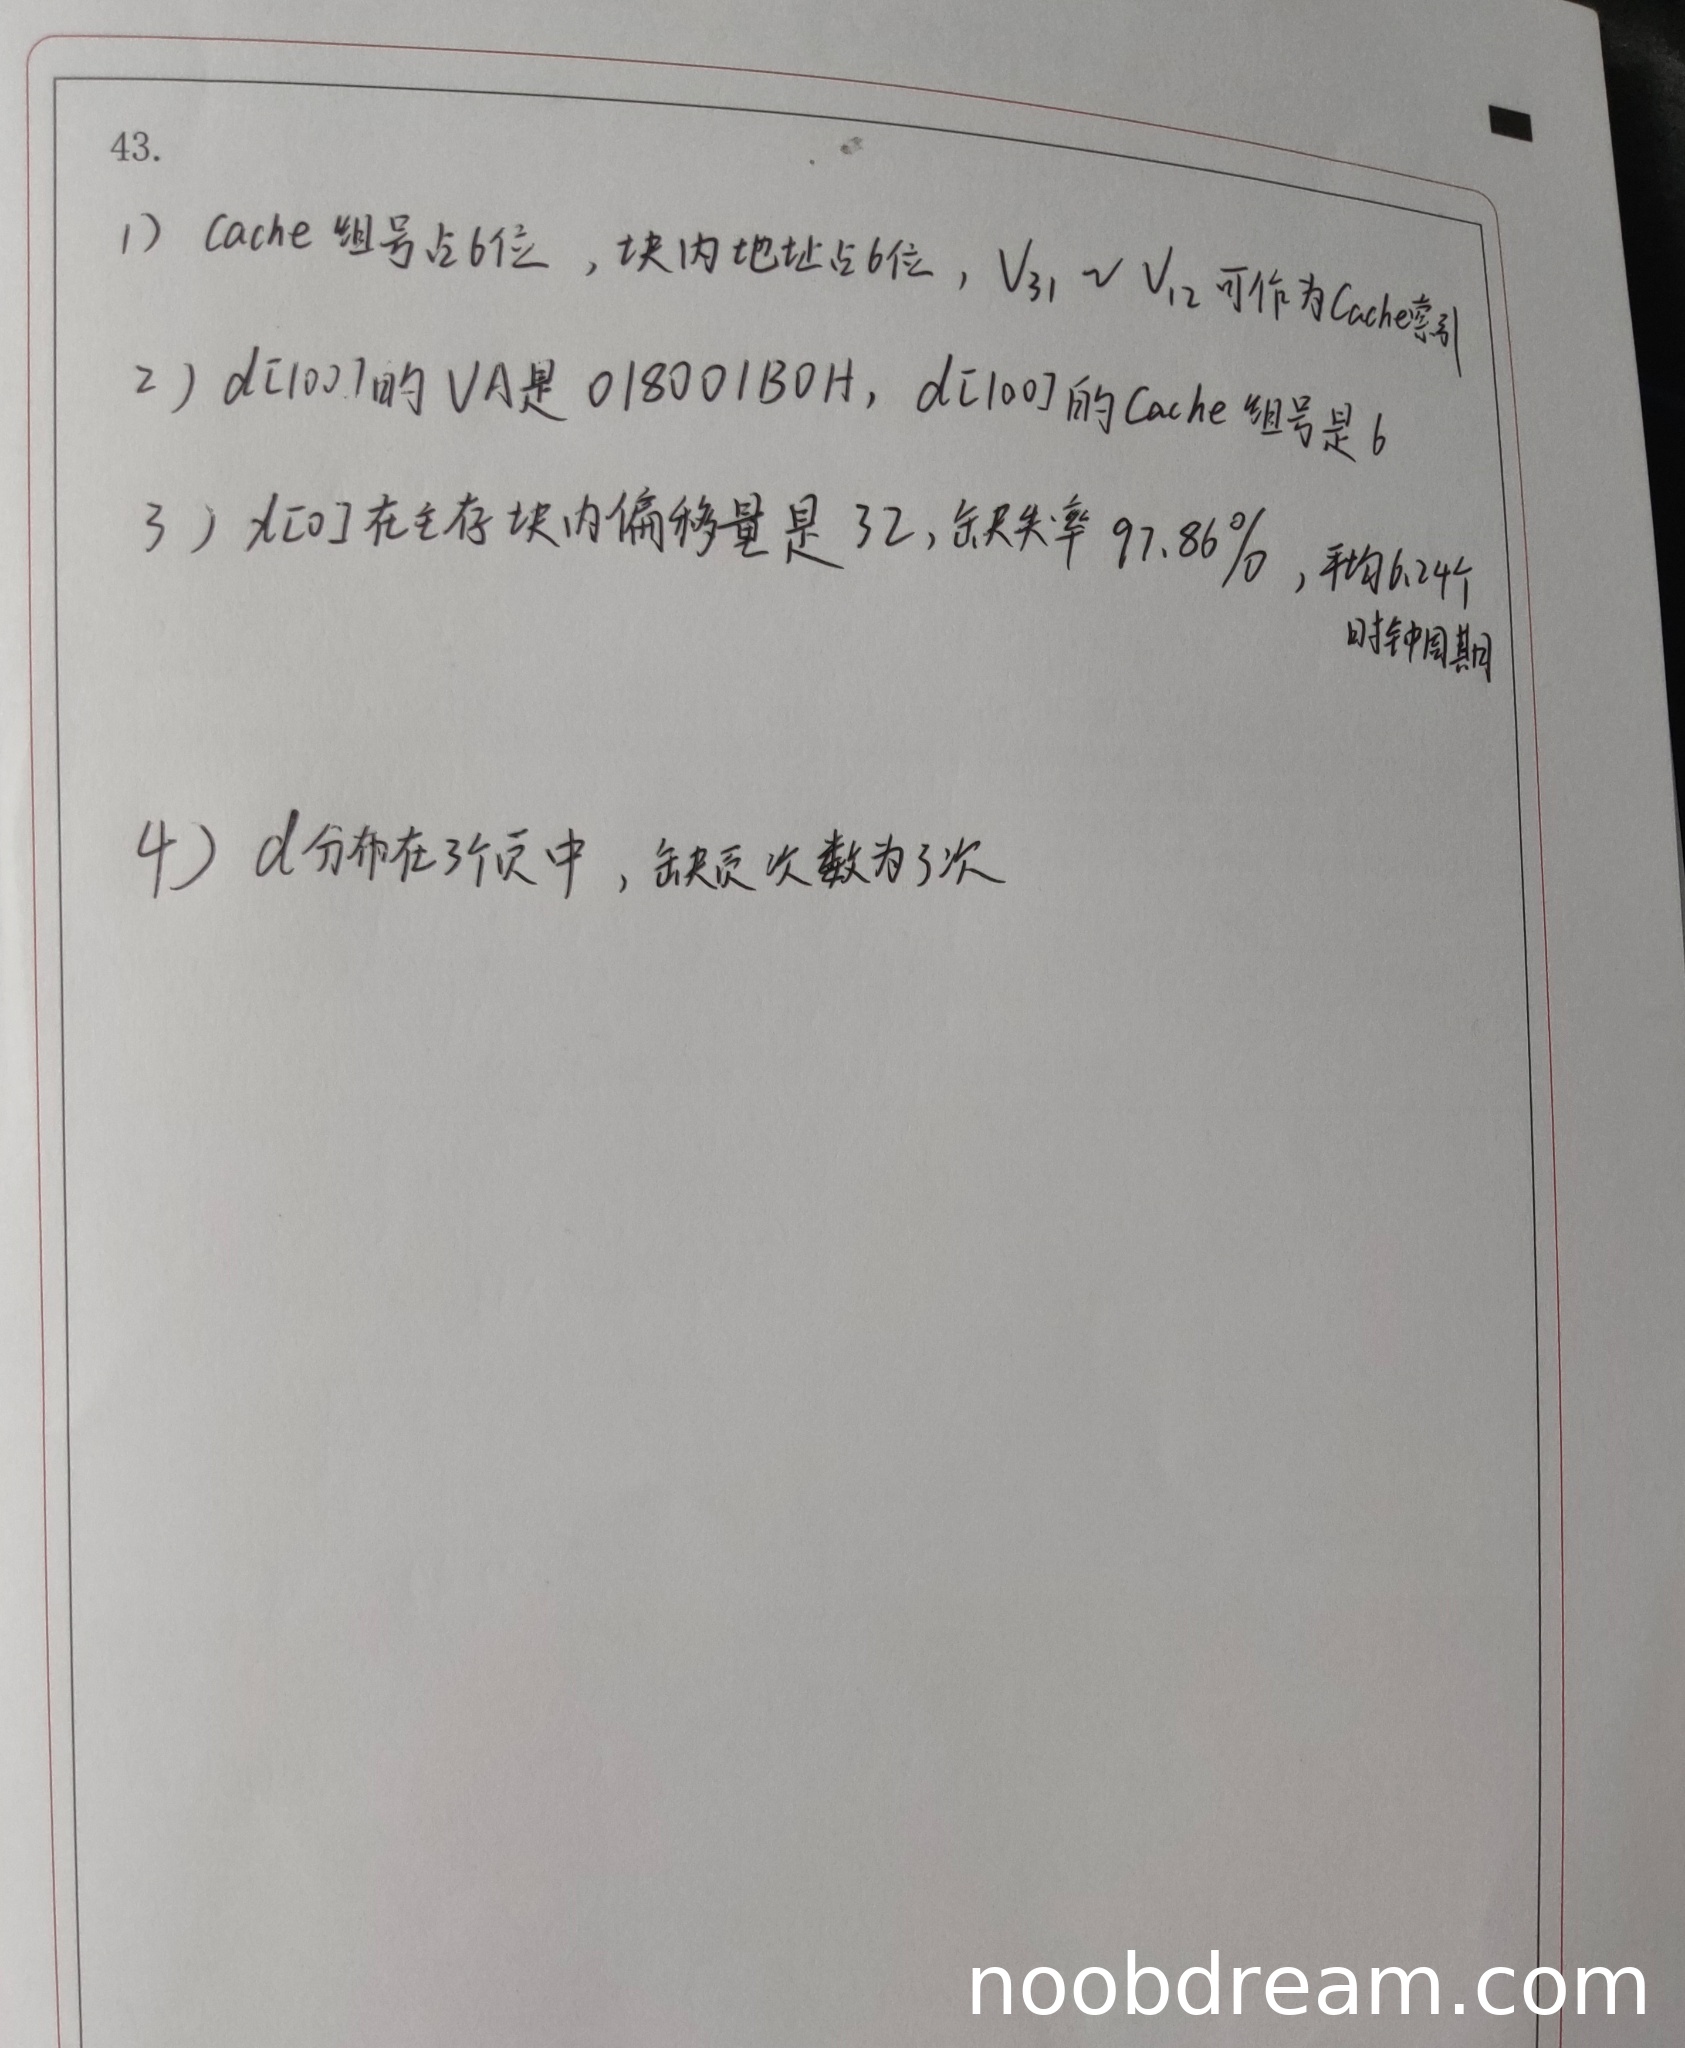 43.
1) Cache 组号占6位，块内地址占6位，V31 ~ V12 可作为Cache索引
2) d[100]的 VA是 018001B0H，d[100]的Cache 组号是 6
3) d[0]在主存块内偏移量是 32，缺失率 97.86%，平均6.24个
时钟周期
4) d分布在3个页中，缺页次数为3次
noobdream.com